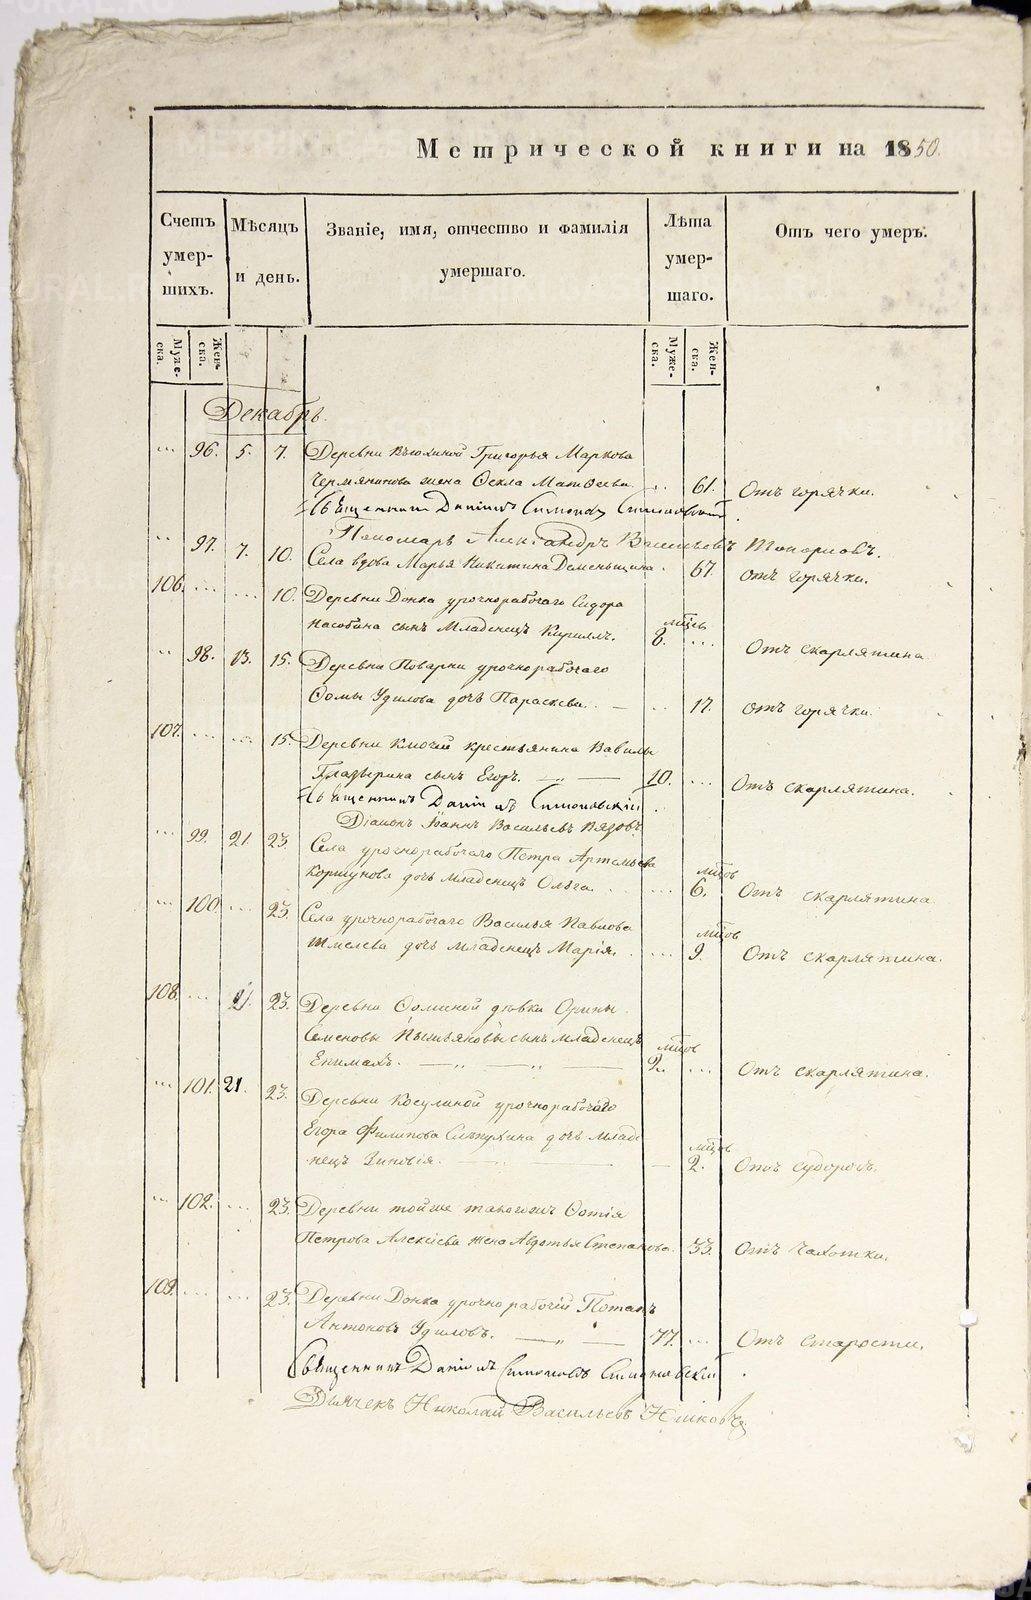 Метрической книги на 1850.
Счетъ умер-шихъ.
Мѣсяцъ и день.
Званіе, имя, отчество и фамилія умершаго.
Лѣта умер-шаго.
Отъ чего умеръ.
Муже-ска.
Жен-ска.
Муже-ска.
Жен-ска.
Декабрь.
96. 5. 7. Деревни Григорья Маркова
Чермянинова жена Ѳекла Матѳеева. 61. Отъ горячки.
Священникъ Даніилъ Симоновъ Симоновскій
Пономарь Александръ Васильевъ Топорковъ.
97. 7. 10. Села вдова Марья Никитина Деменьшина. 67. отъ горячки.
106. 10. Деревни Донка урочнорабочаго Сидора
Насобина сынъ Младенецъ Кириллъ. мцъ 8. Отъ скарлятина
98. 13. 15. Деревна Поварни урочнорабочаго
Ѳомы Удилова дочь Параскева. 17. отъ горячки.
107. 15. Деревни Ключей крестьянина Вавилы
Глазырина сынъ Егоръ. 10. Отъ скарлятина.
Священникъ Даніилъ Симоновскій
Діаконъ Іоаннъ Васильевъ Вязовъ
99. 21. 23. Села урочнорабочаго Петра Артемьева
Коршунова дочь младенецъ Ольга. мцовъ 6. Отъ скарлятина
100. 23. Села урочнорабочаго Василья Павлова
Шмелева дочь младенецъ Марія. мцовъ 9. Отъ скарлятина.
108. 21. 23. Деревни Ѳоминой дѣвки Орины
Семеновы сынъ младенецъ мцовъ
Енимахъ. 2. Отъ скарлятина.
101. 21. 23. Деревни Косулиной урочнорабочаго
Егора Филипова Слѣпухина дочь млад-
нецъ Зиновія. мцовъ 2. Отъ судорогъ.
102. 23. Деревни тойже Ѳотія
Петрова Алексіева жена Авдотья Степанова. 33. отъ чахотки.
109. 23. Деревни Донка урочнорабочій Потапъ
Антоновъ Удиловъ. 77. Отъ старости.
Священникъ Даніилъ Симоновъ Симоновскій
Дьячекъ Николай Васильевъ